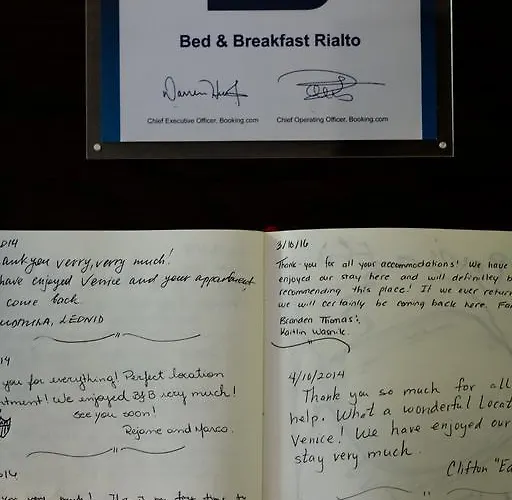 Bed & Breakfast Rialto
Chief Executive Officer, Booking.com
Chief Operating Officer, Booking.com
014
ank you verry, verry much!
have enjoyed Venice and your appartment
come back
LEONID
14
you for everything! Perfect location
ntment! We enjoyed B&B very much!
See you soon!
Rejane and Marco.
014
3/10/16
Thank you for all your accommodations! We have
enjoyed our stay here and will definitley b
recommending this place! If we ever retur
we will certainly be coming back here. Fo
Branden Thomas &
Kaitlin Wasnik.
4/10/2014
Thank you so much for all
help. What a wonderful Locat
Venice! We have enjoyed our
stay very much.
Clifton "Ea